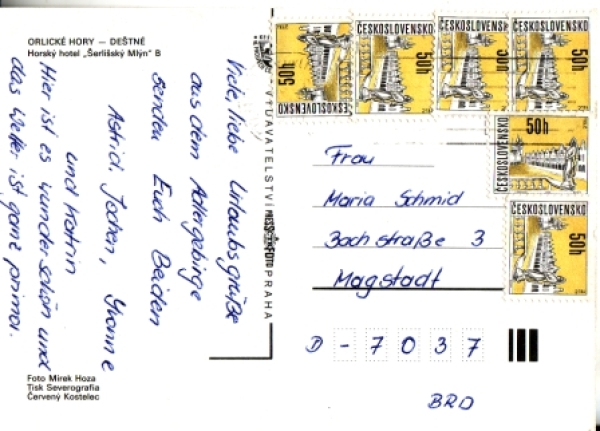 ORLICKÉ HORY — DEŠTNÉ
Horský hotel „Šerlišský Mlýn" B
Viele, liebe Urlaubsgrüße
aus dem Adlergebirge
senden Euch Beiden
Astrid, Jochen, Yvonne
und Katrin
Hier ist es wunderschön und
das Wetter ist ganz prima.
Foto Mirek Hoza
Tisk Severografia
Červený Kostelec
VYDAVATELSTVÍ PRESSFOTO PRAHA
ČESKOSLOVENSKO
50h
ČESKOSLOVENSKO
50h
ČESKOSLOVENSKO
50h
ČESKOSLOVENSKO
50h
ČESKOSLOVENSKO
50h
ČESKOSLOVENSKO
50h
Frau
Maria Schmid
Bachstraße 3
Magstadt
D - 7037
BRD